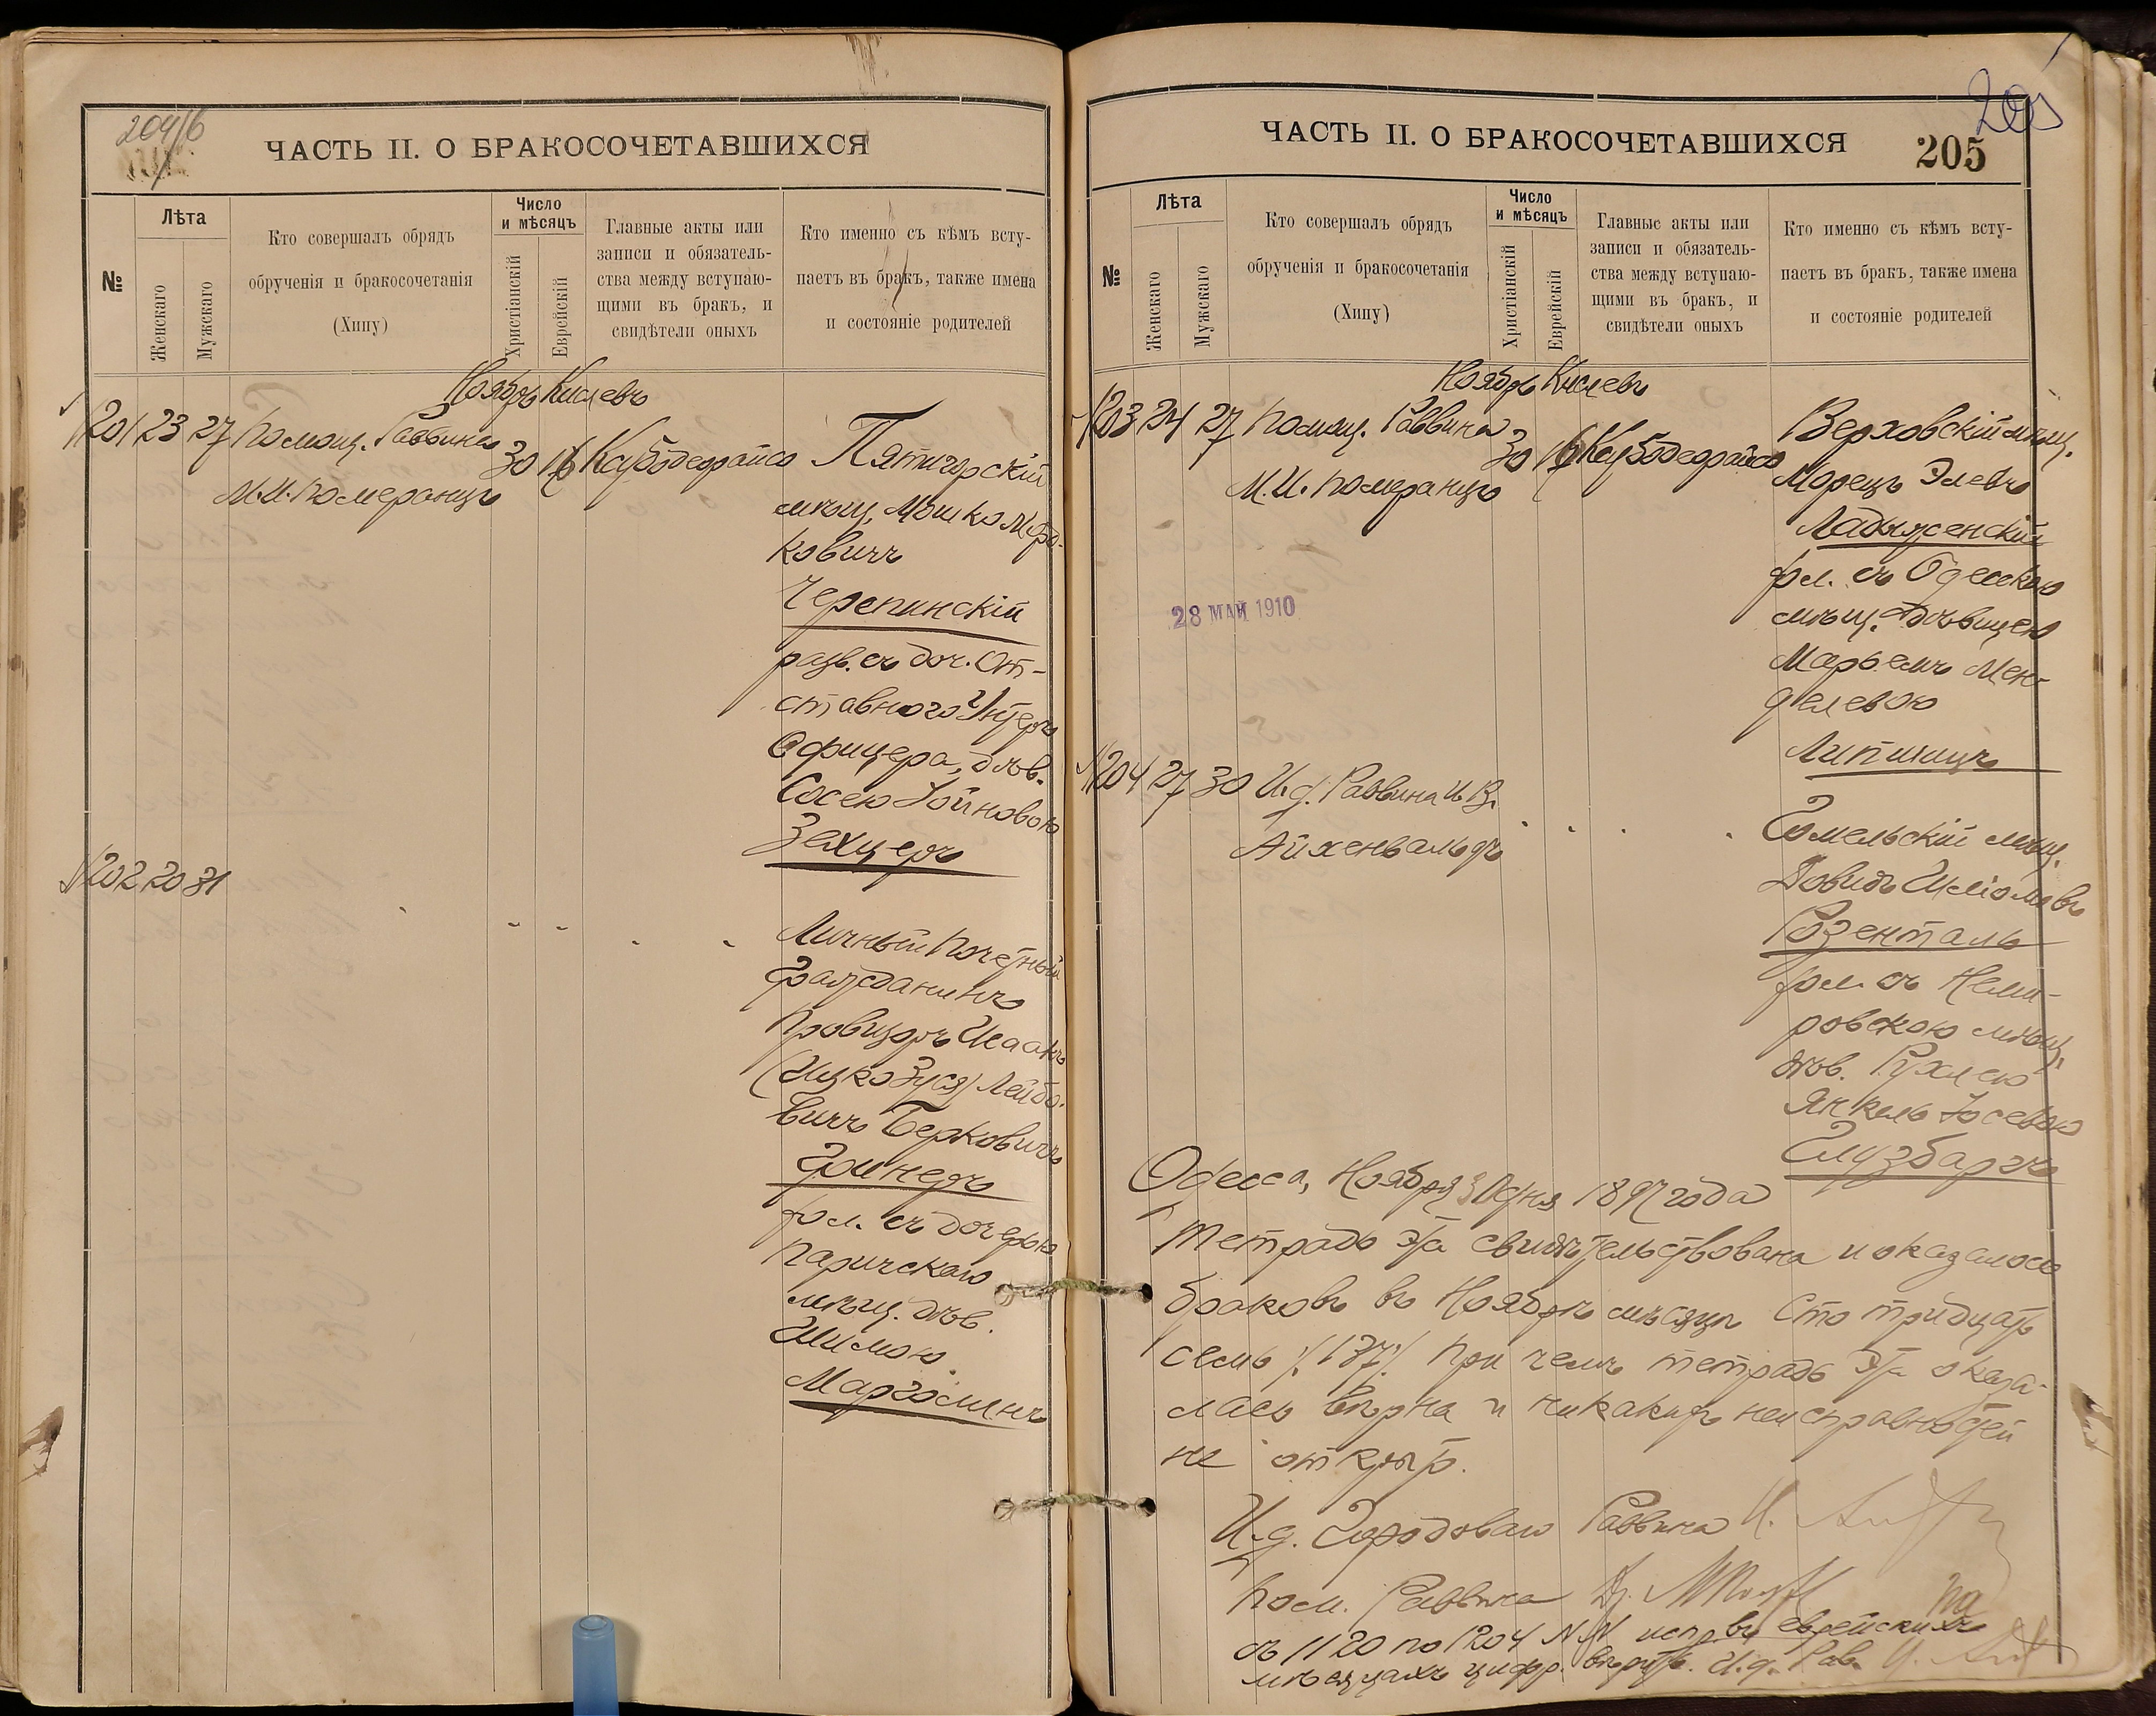 204/б
ЧАСТЬ II. О БРАКОСОЧЕТАВШИХСЯ
№
Лѣта
Женскаго
Мужскаго
Кто совершалъ обрядъ
обрученія и бракосочетанія
(Хипу)
Число
и мѣсяцъ
Христіанскій
Еврейскій
Главные акты или
записи и обязатель-
ства между вступаю-
щими въ бракъ, и
свидѣтели оныхъ
Кто именно съ кѣмъ всту-
паетъ въ бракъ, также имена
и состояніе родителей
Ноябрь Кислевъ
1201 23 27 Помощ. Раввина
М.И. Померанцъ
30 16 Каубодедрайсо
Пятигорскій
мѣщ. Мошко
ковичъ
Черепинскій
разв. съ доч. От-
ставного Унтеръ
Офицера, дѣв.
Сосею Іойновою
Зехцеръ
1202 20 31
Личный Почетный
Гражданинъ
Провизоръ Исаакъ
(Ицко Зуся) Лейбо-
вичъ Берковичъ
Гринеръ
хол. съ дочерью
Паричскаго
мѣщ. дѣв.
Шимою
Марголинъ
205
ЧАСТЬ II. О БРАКОСОЧЕТАВШИХСЯ
205
№
Лѣта
Женскаго
Мужскаго
Кто совершалъ обрядъ
обрученія и бракосочетанія
(Хипу)
Число
и мѣсяцъ
Христіанскій
Еврейскій
Главные акты или
записи и обязатель-
ства между вступаю-
щими въ бракъ, и
свидѣтели оныхъ
Кто именно съ кѣмъ всту-
паетъ въ бракъ, также имена
и состояніе родителей
Ноябрь Кислевъ
1203 24 27 Помощ. Раввина
М.И. Померанцъ
30 16 Каубодедрайсо
Верховскій мѣщ.
Морецъ Элевъ
Ладыженскій
хол. съ Одесскою
мѣщ. дѣвицею
Марьемъ Мен-
делевою
Липшицъ
28 МАЙ 1910
1204 27 30 И.д. Раввина И.В.
Айхенвальдъ
Гомельскій мѣщ.
Довидъ Шліомовъ
Розенталь
хол. съ Неми-
ровскою мѣщ.
дѣв. Рухлею
Янкель Іосевою
Глузбаргъ
Одесса, Ноября 30 дня 1897 года
Тетрадь эта свидѣтельствована и оказалось
браковъ въ Ноябрѣ мѣсяцѣ Сто тридцать
семь /137/ при чемъ тетрадь эта оказа-
лась вѣрна и никакихъ неисправностей
не открыто.
И.д. Городоваго Раввина И.
Пом. Раввина
съ 1120 по 1204 №№ испр. въ еврейскихъ
мѣсяцахъ цифр. вѣрить. И.д. Рав. И.